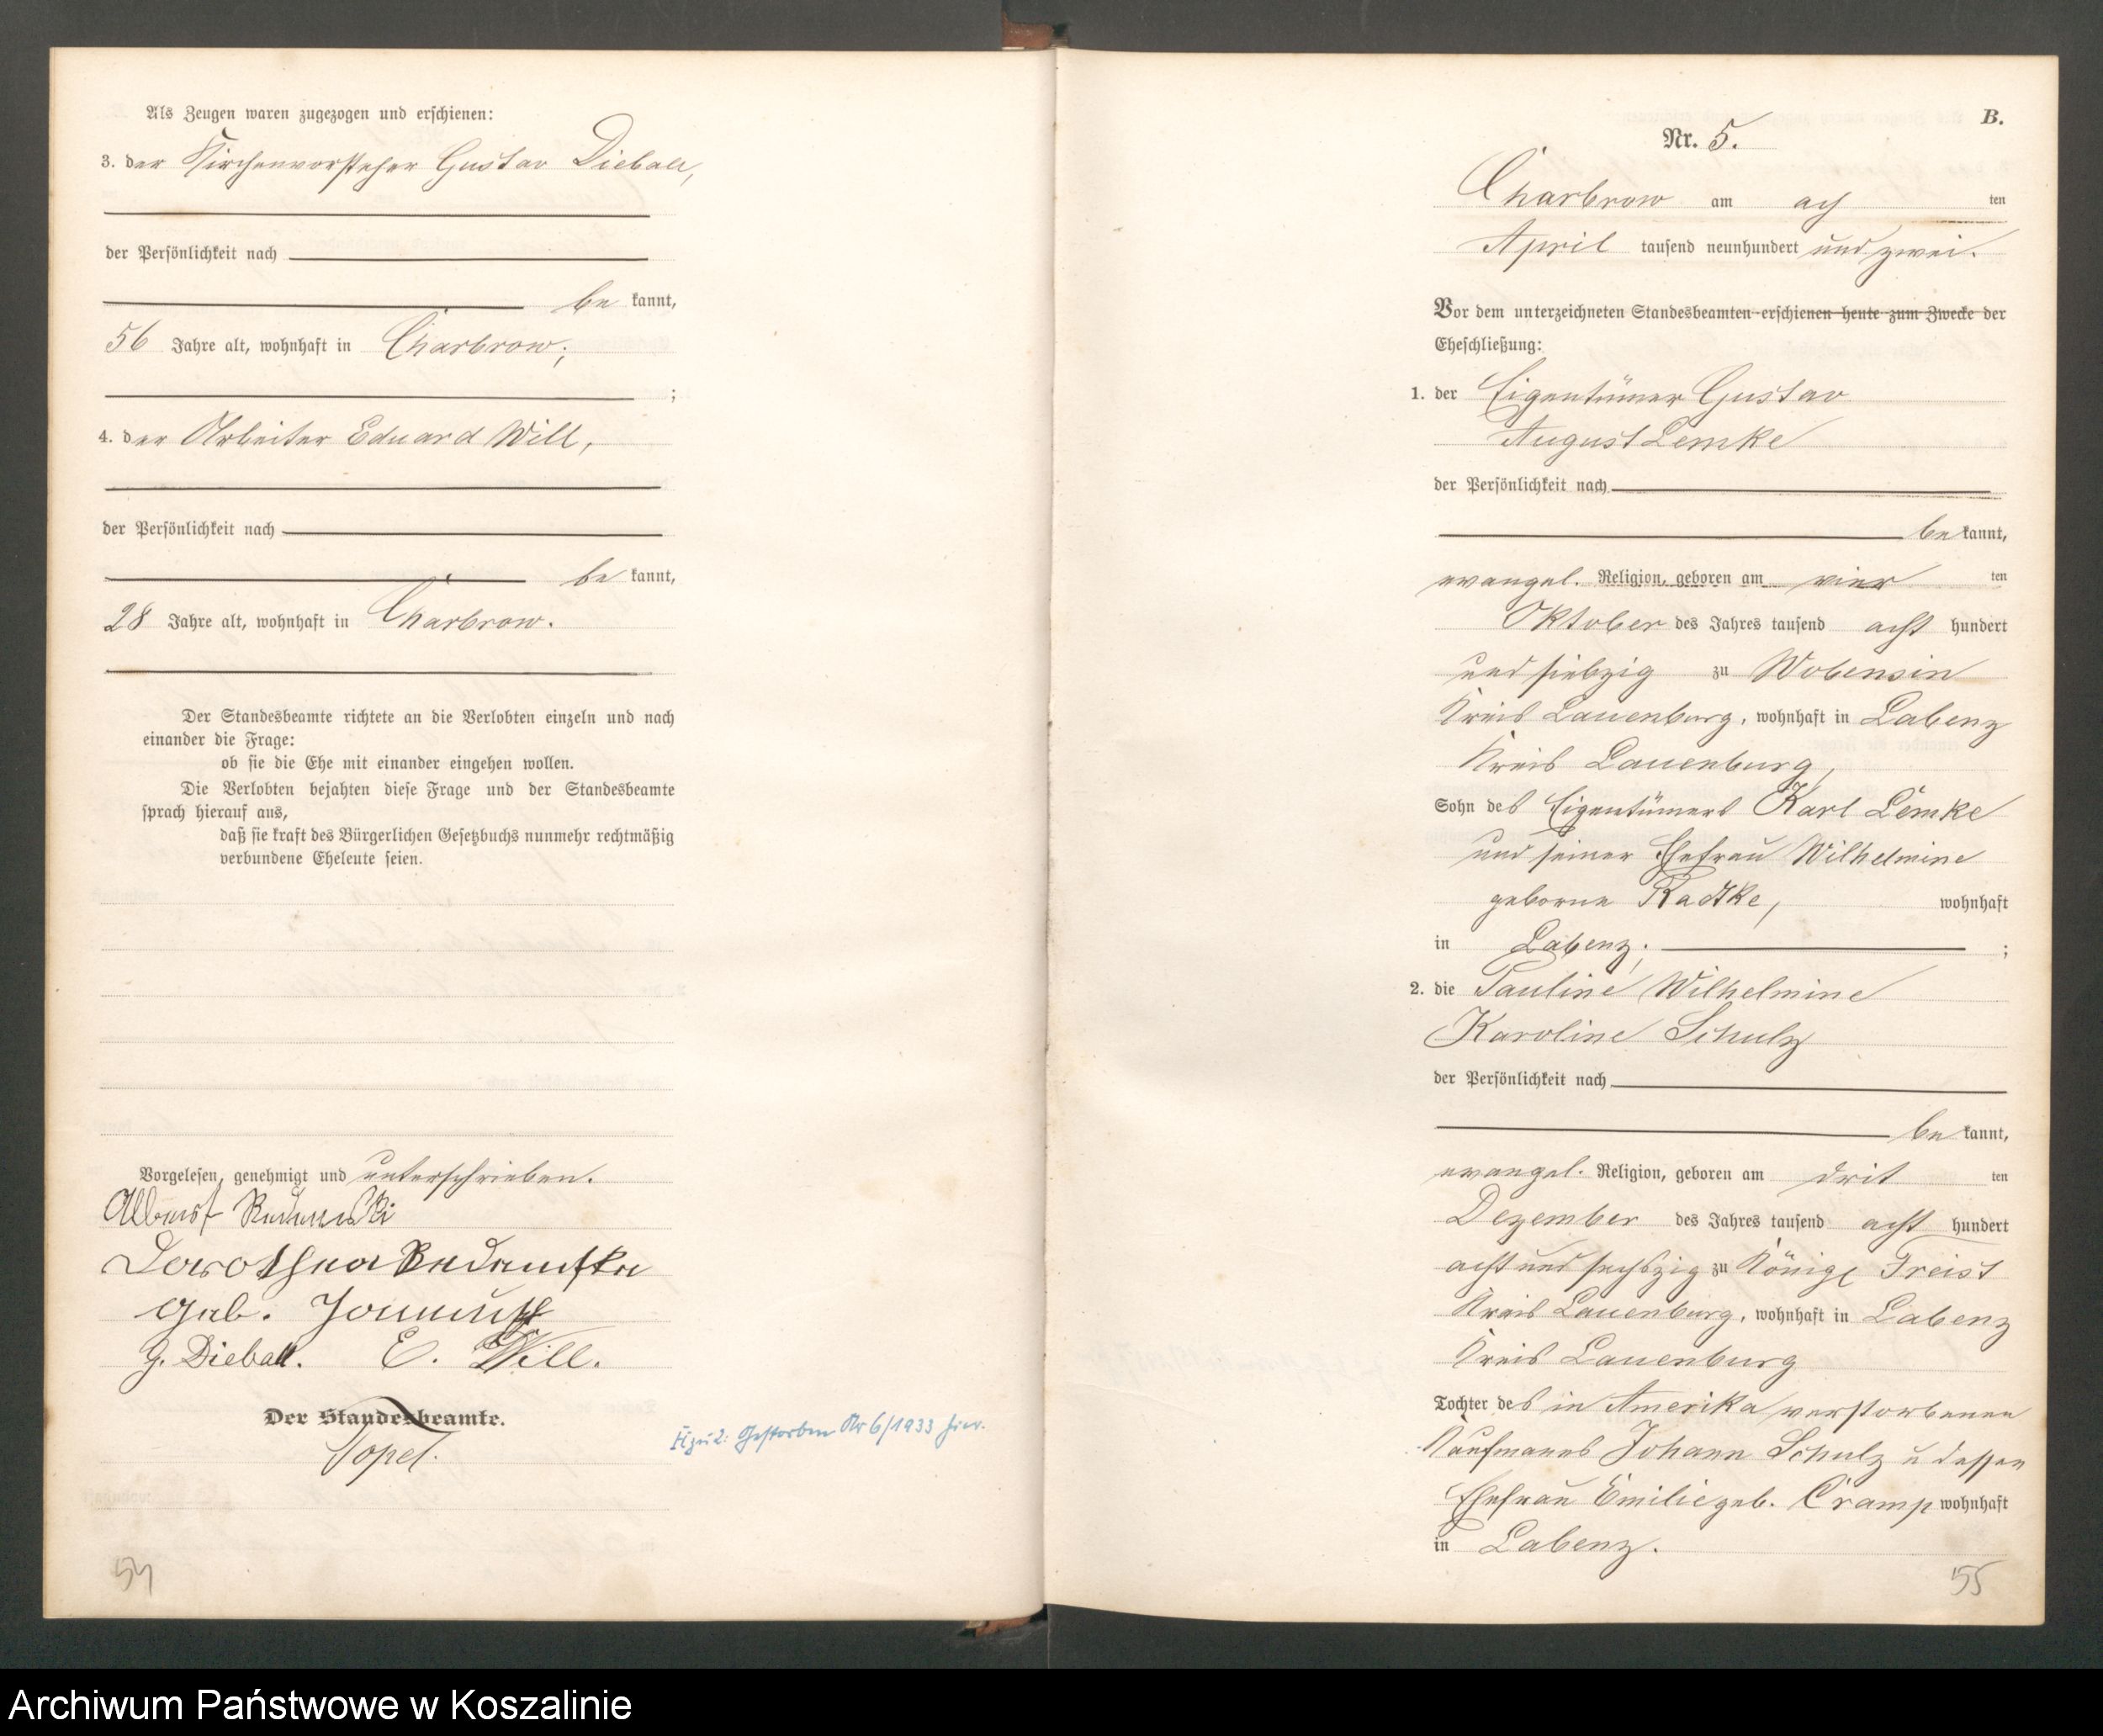 Als Zeugen waren zugezogen und erschienen:
3. der Kirchenvorsteher Gustav Dieball,
der Persönlichkeit nach
be kannt,
56 Jahre alt, wohnhaft in Charbrow;
;
4. der Arbeiter Eduard Will,
der Persönlichkeit nach
be kannt,
28 Jahre alt, wohnhaft in Charbrow.
Der Standesbeamte richtete an die Verlobten einzeln und nach
einander die Frage:
ob sie die Ehe mit einander eingehen wollen.
Die Verlobten bejahten diese Frage und der Standesbeamte
sprach hierauf aus,
daß sie kraft des Bürgerlichen Gesetzbuchs nunmehr rechtmäßig
verbundene Eheleute seien.
Vorgelesen, genehmigt und unterschrieben.
Albert
Dorothea
geb.
G. Dieball. E. Will.
Der Standesbeamte.
Topel.
H zu 2: Gestorben Nr 6/1933 hier.
54
B.
Nr. 5.
Charbrow am ach ten
April tausend neunhundert und zwei.
Vor dem unterzeichneten Standesbeamten erschienen heute zum Zwecke der
Eheschließung:
1. der Eigentümer Gustav
August Lemke
der Persönlichkeit nach
be kannt,
evangel. Religion, geboren am vier ten
Oktober des Jahres tausend acht hundert
und siebzig zu Wobensin
Kreis Lauenburg, wohnhaft in Labenz
Kreis Lauenburg,
Sohn des Eigentümers Karl Lemke
und seiner Ehefrau Wilhelmine
geborne Radtke, wohnhaft
in Labenz; ;
2. die Pauline Wilhelmine
Karoline Schulz
der Persönlichkeit nach
be kannt,
evangel. Religion, geboren am drit ten
Dezember des Jahres tausend acht hundert
acht und sechszig zu Königl Freist
Kreis Lauenburg, wohnhaft in Labenz
Kreis Lauenburg
Tochter des in Amerika verstorbenen
Kaufmanns Johann Schulz u dessen
Ehefrau Emilie geb. Cramp wohnhaft
in Labenz.
55
Archiwum Państwowe w Koszalinie